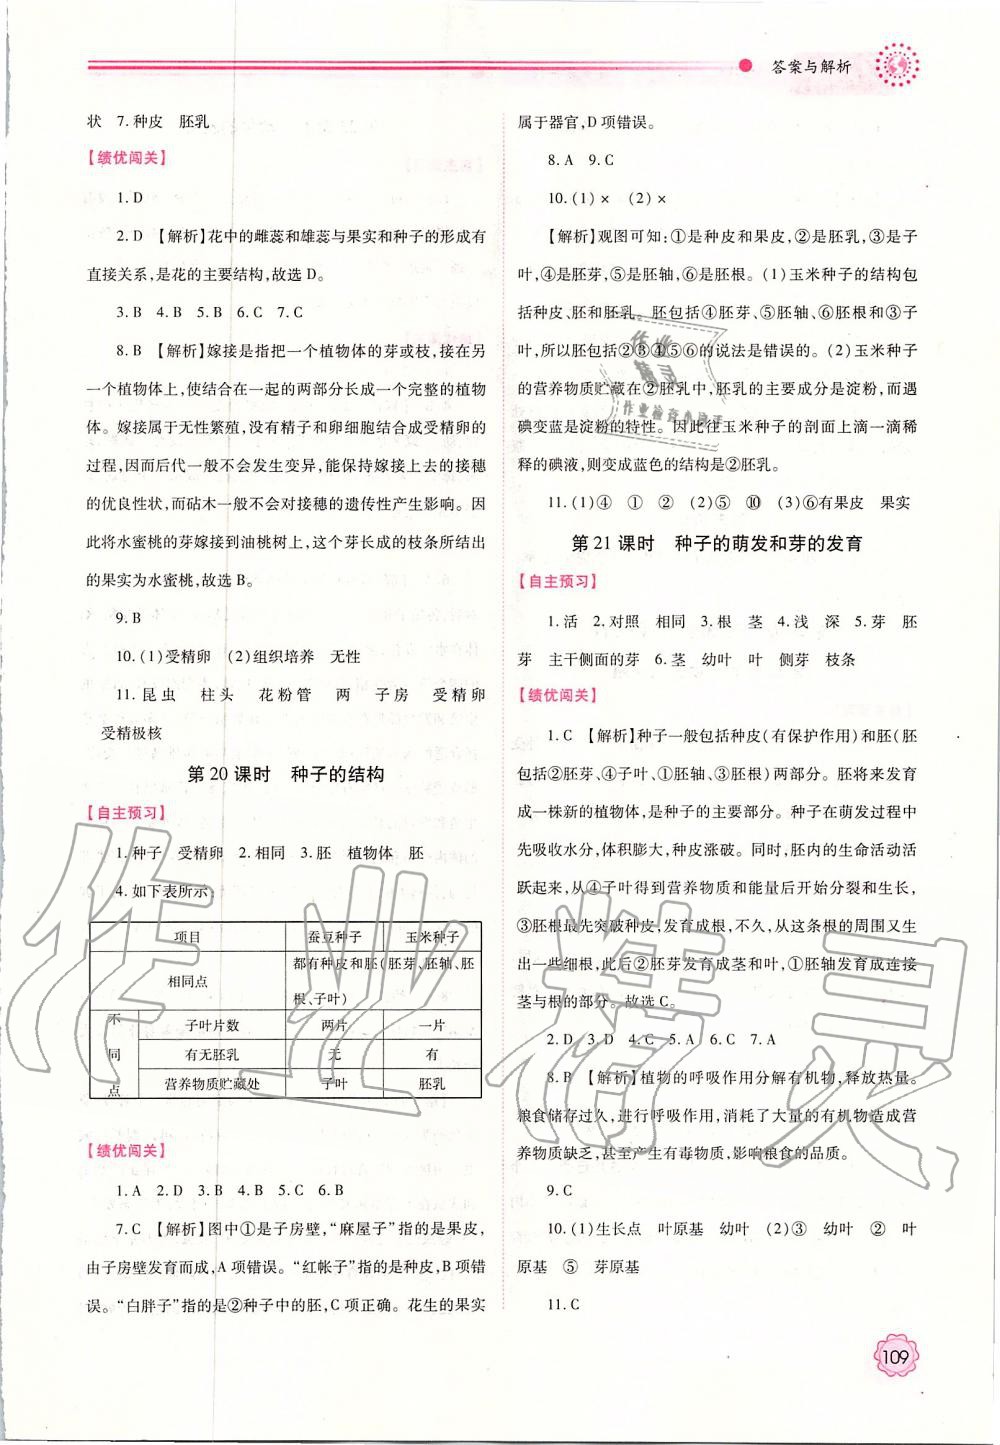 答案与解析
状　7.种皮　胚乳
【绩优闯关】
1.D
2.D　【解析】花中的雌蕊和雄蕊与果实和种子的形成有
直接关系,是花的主要结构,故选 D。
3.B　4.B　5.B　6.C　7.C
8.B　【解析】嫁接是指把一个植物体的芽或枝,接在另
一个植物体上,使结合在一起的两部分长成一个完整的植物
体。嫁接属于无性繁殖,没有精子和卵细胞结合成受精卵的
过程,因而后代一般不会发生变异,能保持嫁接上去的接穗
的优良性状,而砧木一般不会对接穗的遗传性产生影响。因
此将水蜜桃的芽嫁接到油桃树上,这个芽长成的枝条所结出
的果实为水蜜桃,故选 B。
9.B
10.(1)受精卵　(2)组织培养　无性
11.昆虫　柱头　花粉管　两　子房　受精卵
受精极核
第 20 课时　种子的结构
【自主预习】
1.种子　受精卵　2.相同　3.胚　植物体　胚
4.如下表所示:
项目　蚕豆种子　玉米种子
相同点　都有种皮和胚(胚芽、胚轴、胚
根、子叶)
不同点　子叶片数　两片　一片
有无胚乳　无　有
营养物质贮藏处　子叶　胚乳
【绩优闯关】
1.A　2.D　3.B　4.B　5.C　6.B
7.C　【解析】图中①是子房壁,“麻屋子”指的是果皮,
由子房壁发育而成,A 项错误。“红帐子”指的是种皮,B 项错
误。“白胖子”指的是②种子中的胚,C 项正确。花生的果实
属于器官,D 项错误。
8.A　9.C
10.(1)×　(2)×
【解析】观图可知:①是种皮和果皮,②是胚乳,③是子
叶,④是胚芽,⑤是胚轴,⑥是胚根。(1)玉米种子的结构包
括种皮、胚和胚乳。胚包括④胚芽、⑤胚轴、⑥胚根和③子
叶,所以胚包括②③④⑤⑥的说法是错误的。(2)玉米种子
的营养物质贮藏在②胚乳中,胚乳的主要成分是淀粉,而遇
碘变蓝是淀粉的特性。因此往玉米种子的剖面上滴一滴稀
释的碘液,则变成蓝色的结构是②胚乳。
11.(1)④　①　②　(2)⑤　⑩　(3)⑥有果皮　果实
第 21 课时　种子的萌发和芽的发育
【自主预习】
1.活　2.对照　相同　3.根　茎　4.浅　深　5.芽　胚
芽　主干侧面的芽　6.茎　幼叶　叶　侧芽　枝条
【绩优闯关】
1.C　【解析】种子一般包括种皮(有保护作用)和胚(胚
包括②胚芽、④子叶、①胚轴、③胚根)两部分。胚将来发育
成一株新的植物体,是种子的主要部分。种子在萌发过程中
先吸收水分,体积膨大,种皮涨破。同时,胚内的生命活动活
跃起来,从④子叶得到营养物质和能量后开始分裂和生长,
③胚根最先突破种皮,发育成根,不久,从这条根的周围又生
出一些细根,此后②胚芽发育成茎和叶,①胚轴发育成连接
茎与根的部分。故选 C。
2.D　3.D　4.C　5.A　6.C　7.A
8.B　【解析】植物的呼吸作用分解有机物,释放热量。
粮食储存过久,进行呼吸作用,消耗了大量的有机物造成营
养物质缺乏,甚至产生有毒物质,影响粮食的品质。
9.C
10.(1)生长点　叶原基　幼叶　(2)③　幼叶　②　叶
原基　⑤　芽原基
11.C
109
作业精灵
作业检查小助手
作业精灵